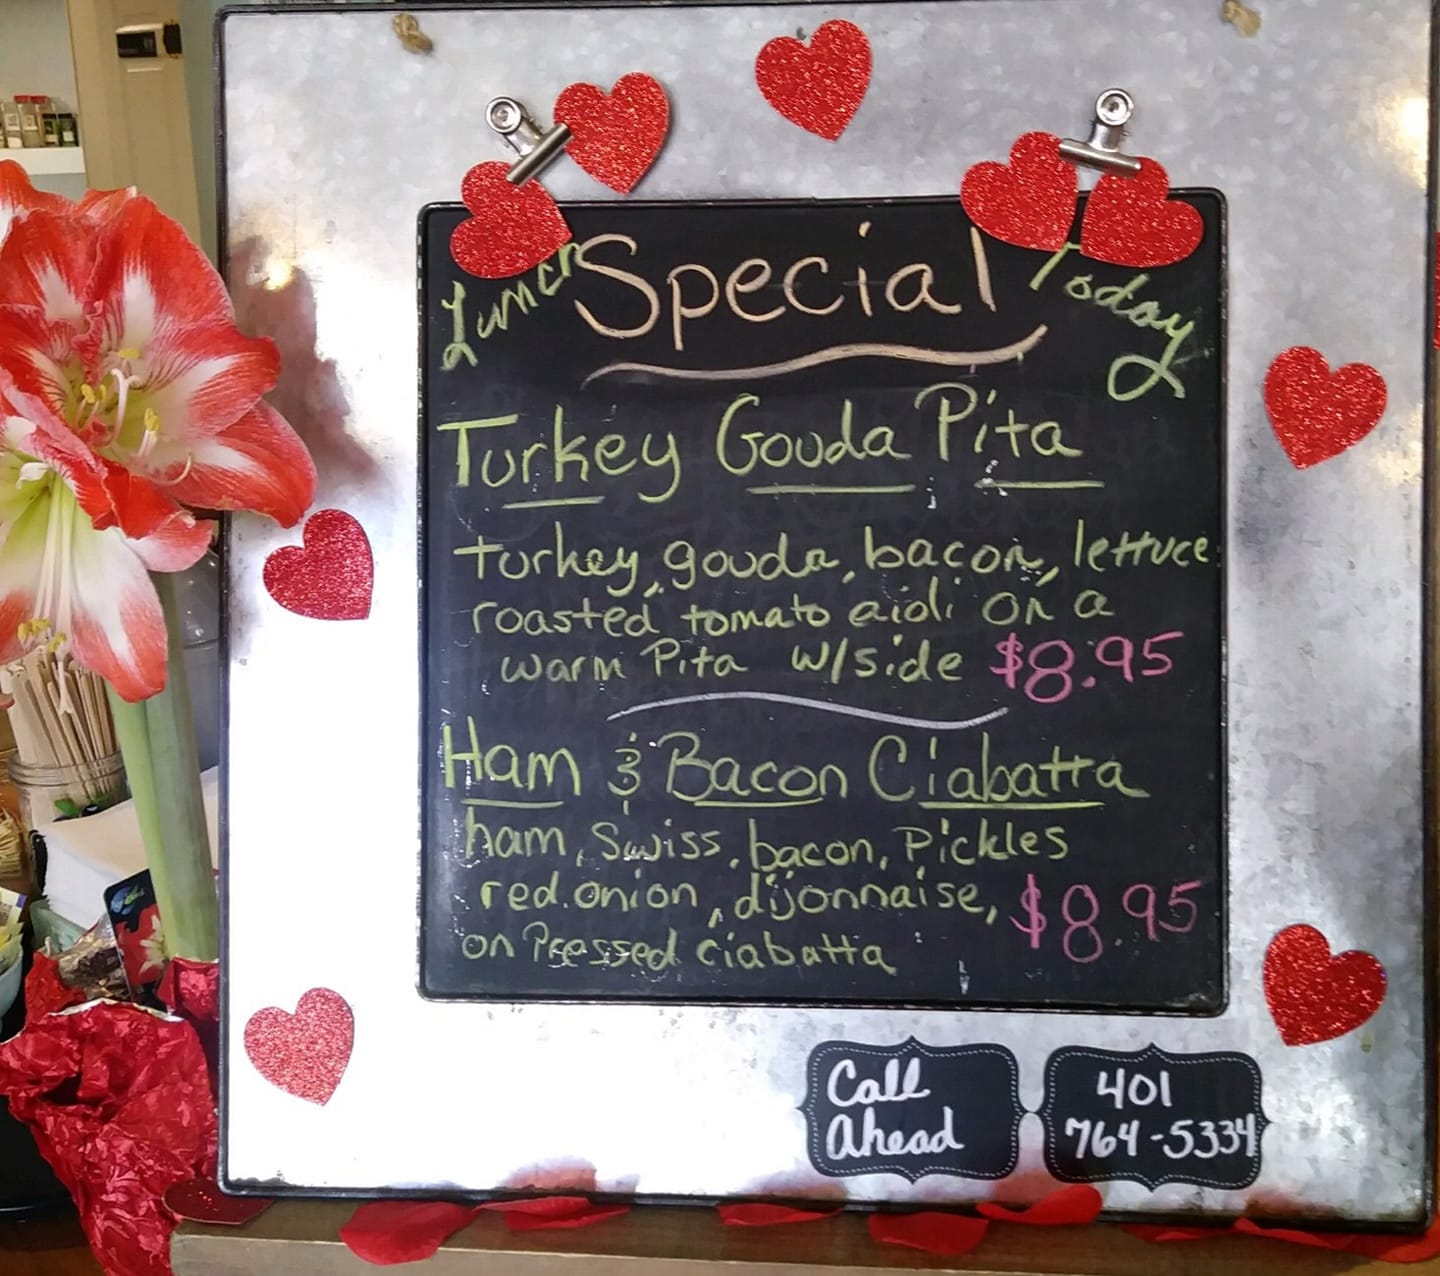 Lunch Special Today
Turkey Gouda Pita
turkey, gouda, bacon, lettuce
roasted tomato aioli on a
warm Pita w/side $8.95
Ham & Bacon Ciabatta
ham, Swiss, bacon, Pickles
red onion, dijonnaise, $8.95
on Pressed ciabatta
Call
Ahead
401
764-5334